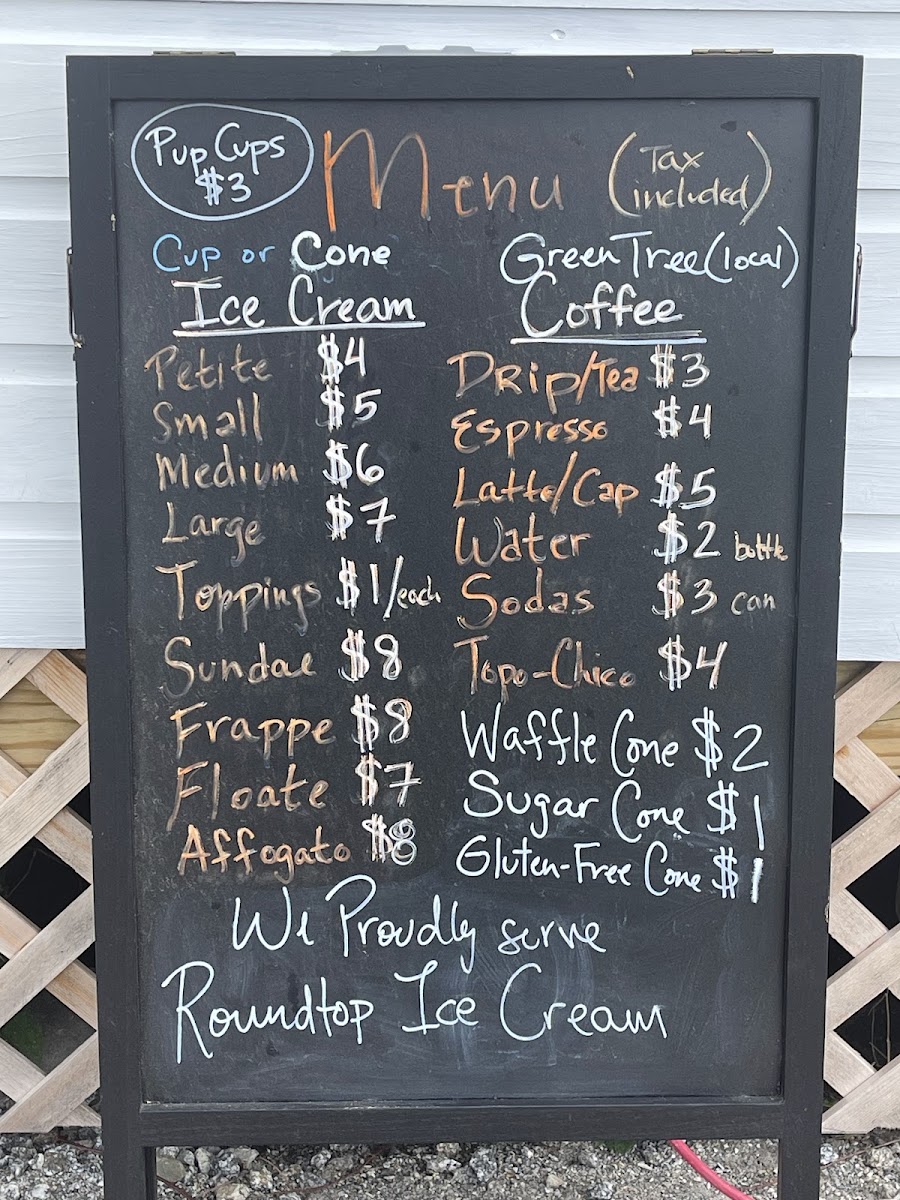 Pup Cups
$3
Menu
(Tax
included)
Cup or Cone
Ice Cream
Petite $4
Small $5
Medium $6
Large $7
Toppings $1/each
Sundae $8
Frappe $8
Floate $7
Affogato $8
Green Tree (local)
Coffee
Drip/Tea $3
Espresso $4
Latte/Cap $5
Water $2 bottle
Sodas $3 can
Topo-Chico $4
Waffle Cone $2
Sugar Cone $1
Gluten-Free Cone $1
We Proudly serve
Roundtop Ice Cream